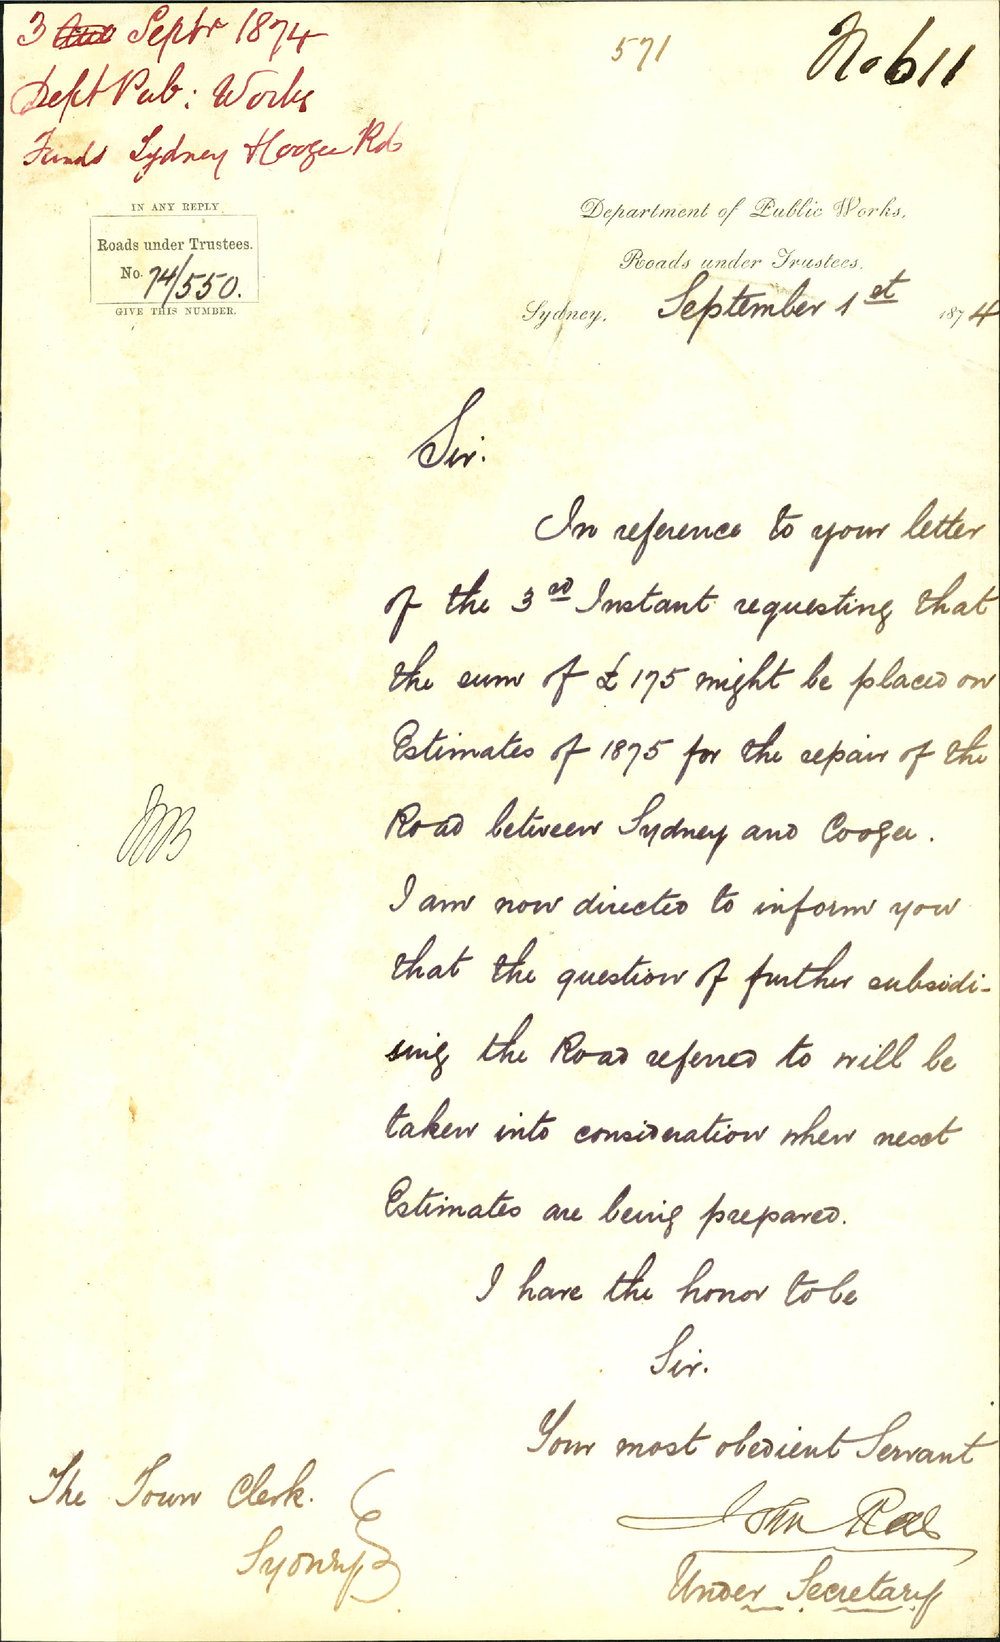 3 Septr 1874
Dept Pub: Works
Funds Sydney & Coogee Rd
571
No 611
IN ANY REPLY
Roads under Trustees.
No. 74/550.
GIVE THIS NUMBER.
Department of Public Works,
Roads under Trustees.
Sydney, September 1st 1874
Sir.
In reference to your letter
of the 3rd Instant requesting that
the sum of £175 might be placed on
Estimates of 1875 for the repair of the
Road between Sydney and Coogee.
I am now directed to inform you
that the question of further subsidi-
sing the Road referred to will be
taken into consideration when next
Estimates are being prepared.
I have the honor to be
Sir.
Your most obedient Servant
John Rae
Under Secretary
The Town Clerk.
Sydney